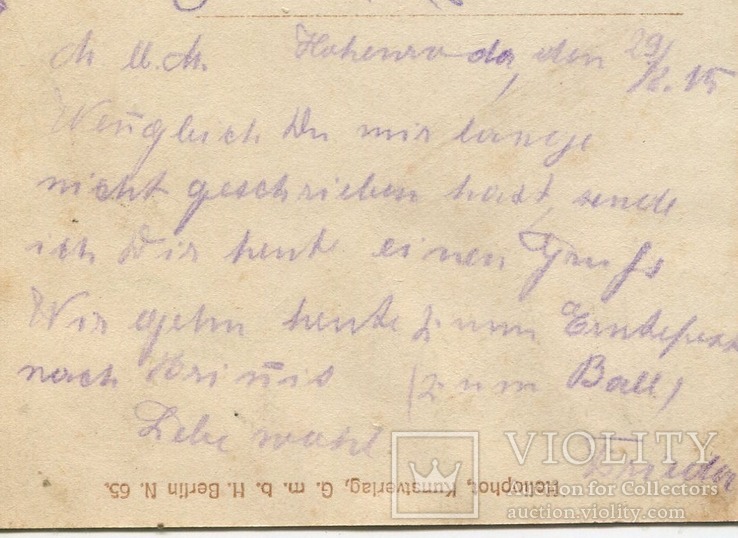 M. U. M. Hohenroda, den 29/
X. 15
Wenngleich Du mir lange
nicht geschrieben hast, sende
ich Dir heute einen Gruß
Wir gehn heute zum Erntefest
nach (zum Ball)
Lebe wohl
Bruder
Heliophot, Kunstverlag, G. m. b. H. Berlin N. 65.
VIOLITY
Auction for Collectors
auction.violity.com